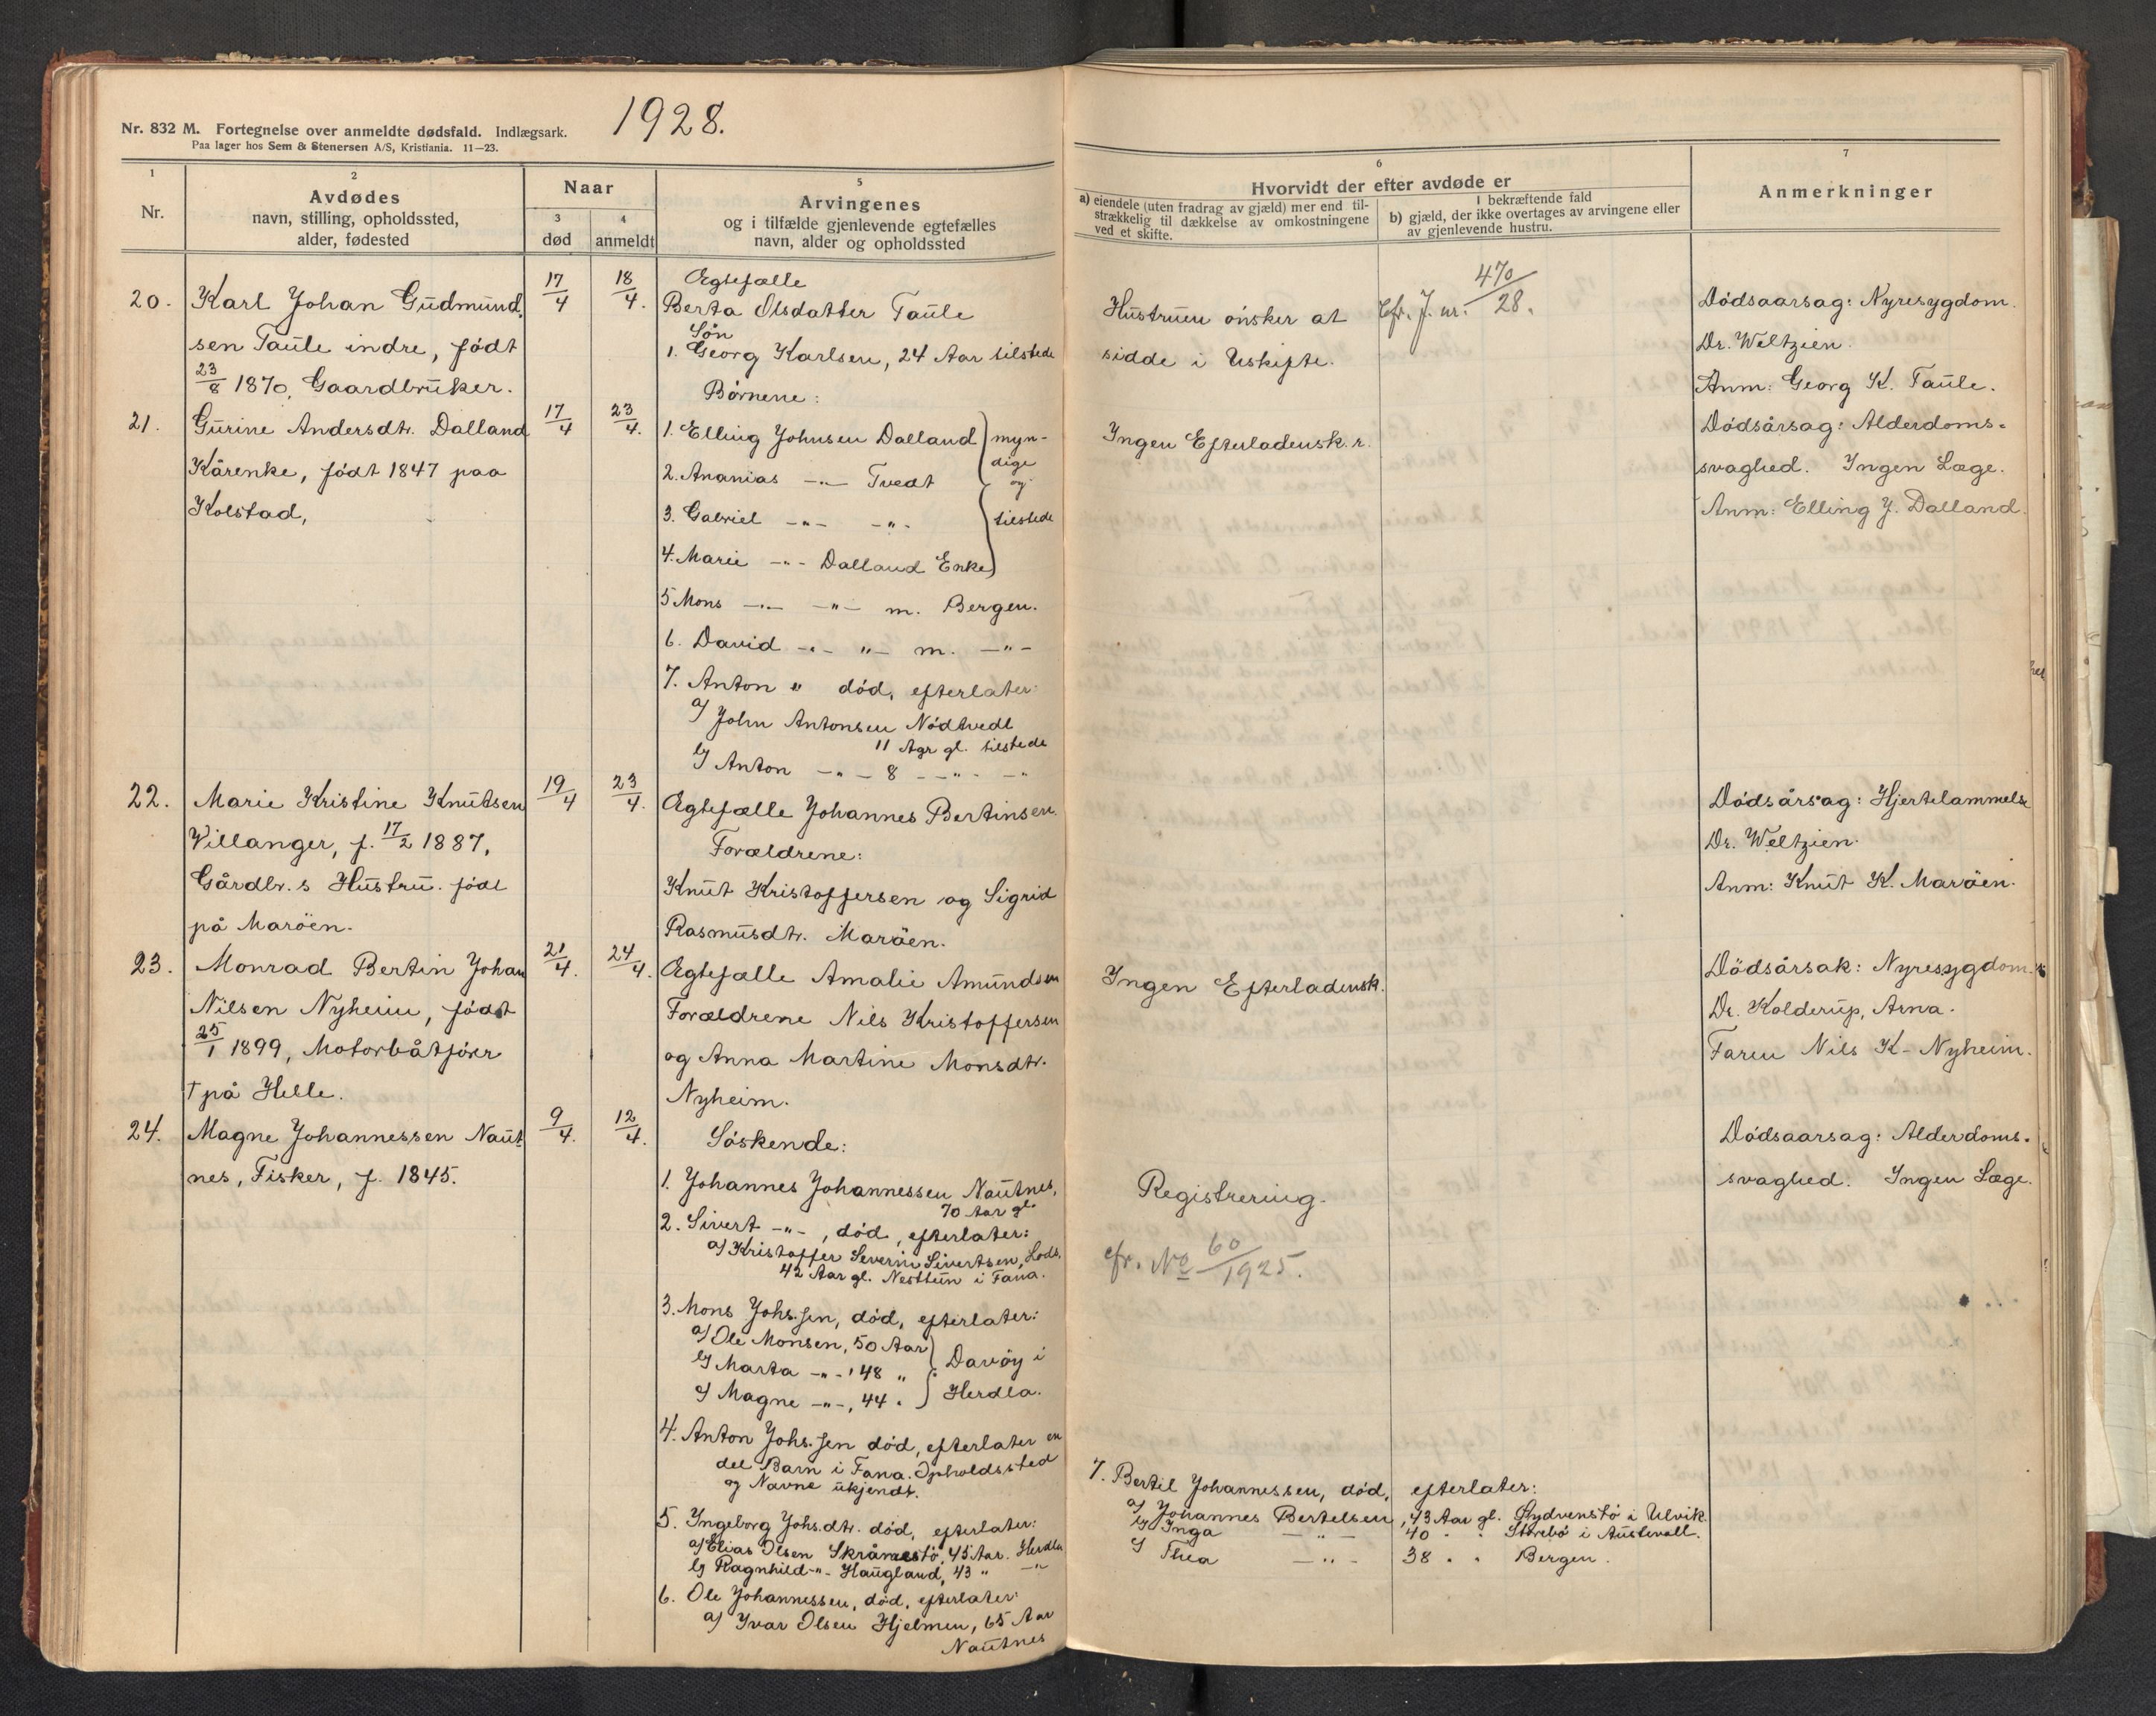 1928.
Nr. 832 M. Fortegnelse over anmeldte dødsfald. Indlægsark.
Paa lager hos Sem & Stenersen A/S, Kristiania. 11—23.
1
Nr.
2
Avdødes
navn, stilling, opholdssted,
alder, fødested
Naar
3
død
4
anmeldt
5
Arvingenes
og i tilfælde gjenlevende egtefælles
navn, alder og opholdssted
6
Hvorvidt der efter avdøde er
a) eiendele (uten fradrag av gjæld) mer end til-
strækkelig til dækkelse av omkostningene
ved et skifte.
I bekræftende fald
b) gjæld, der ikke overtages av arvingene eller
av gjenlevende hustru.
7
Anmerkninger
20.
Karl Johan Gudmund
sen Taule indre, født
23/8 1870, Gaardbruker.
17/4
18/4.
Ægtefælle
Berta Olsdatter Taule
Søn
1. Georg Karlsen, 24 Aar tilstede
Hustruen ønsker at
sidde i Uskifte.
Cfr. J. nr. 470/28.
Dødsaarsag: Nyresygdom.
Dr. Weltzien.
Anm: Georg K. Taule.
21.
Gurine Andersdtr. Dalland
Kårenke, født 1847 paa
Kolstad,
17/4
23/4.
Børnene:
1. Elling Johnsen Dalland
2. Ananias -"- Tvedt
3. Gabriel -"- -"-
4. Marie -"- Dalland Enke
myn-
dige
og
tilstede
5 Mons -"- -"- m. Bergen.
6. David -"- "- m. -"-
7. Anton " død, efterlater:
a/ John Antonsen Nødtvedt
11 Aar gl. tilstede
b/ Anton -"- 8 -"- -"-
Ingen Efterladensk.r.
Dødsårsag: Alderdoms-
svaghed. Ingen Læge.
Anm: Elling J. Dalland.
22.
Marie Kristine Knutsen
Villanger, f. 17/2 1887,
Gårdbr.s Hustru. født
på Marøen.
19/4
23/4.
Ægtefælle Johannes Bertinsen.
Forældrene:
Knut Kristoffersen og Sigrid
Rasmusdtr. Marøen.
Dødsårsag: Hjertelammelse
Dr. Weltzien.
Anm: Knut K. Marøen.
23.
Monrad Bertin Johan
Nilsen Nyheim, født
25/1 1899, Motorbåtfører
† på Helle.
21/4.
24/4.
Ægtefælle Amalie Amundsen
Forældrene Nils Kristoffersen
og Anna Martine Monsdtr.
Nyheim.
Ingen Efterladensk.
Dødsårsak: Nyresygdom.
Dr. Kolderup, Arna.
Faren Nils K- Nyheim.
24.
Magne Johannessen Naut
nes, Fisker, f. 1845.
9/4.
12/4.
Søskende:
1. Johannes Johannessen Nautnes,
70 Aar gl.
2. Sivert -"-, død, efterlater:
a/ Kristoffer Severin Sivertsen, Lods.
42 Aar gl. Nesttun i Fana.
3. Mons Johs.sen, død, efterlater:
a/ Ole Monsen, 50 Aar
b/ Marta -"-, 48 "
c/ Magne -"-, 44 "
Davøy i
Herdla.
4. Anton Johs.sen død, efterlater en
del Barn i Fana. Opholdssted
og Navne ukjendt.
5. Ingeborg Johs.dtr. død, efterlater:
a/ Elias Olsen Skråmestø, 45 Aar. Herdla
b/ Ragnhild -"- Haugland, 43 " -"-
6. Ole Johannessen, død, efterlater:
a/ Ivar Olsen Hjelmen, 65 Aar
Nautnes
Registrering.
cfr. No 60/1925.
Dødsaarsag: Alderdoms-
svaghed. Ingen Læge.
7. Bertil Johannessen, død, efterlater:
a/ Johannes Bertelsen, 43 Aar gl. i Ulvik.
b/ Inga -"- 40 " " Storebø i Austevoll.
c/ Thea -"- 38 " " Bergen.